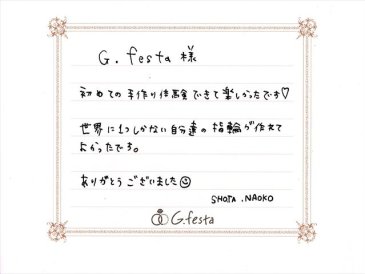 G.festa 様
初めての手作り体験できて楽しかったです♡
世界に1つしかない自分達の指輪が作れて
よかったです。
ありがとうございました☺
SHOTA . NAOKO
G.festa